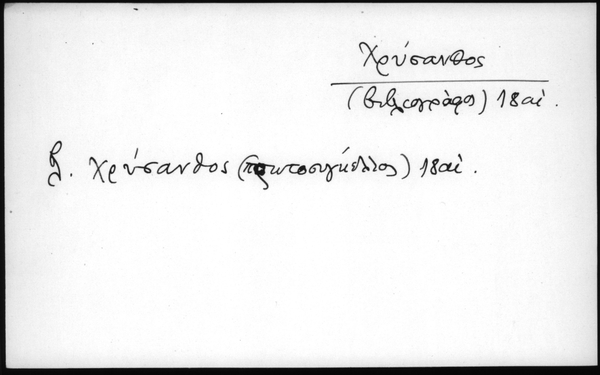 Χρύσανθος
(βιβλιογράφος) 18 αἰ.
βλ. Χρύσανθος (πρωτοσυγκελλος) 18 αἰ.